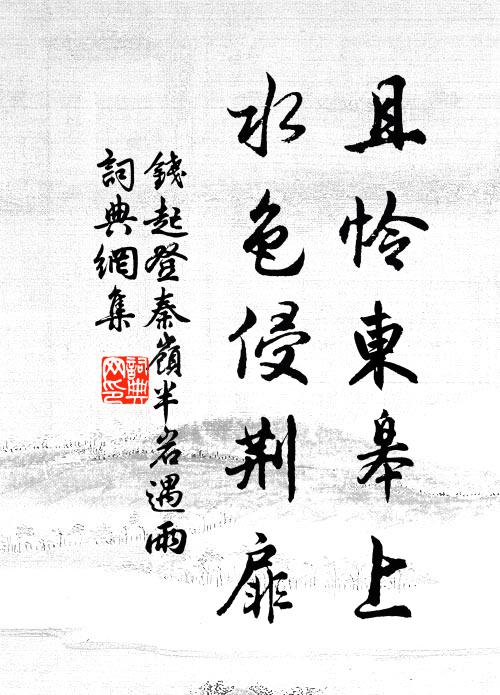 且怜東皋上
水色侵荆扉
錢起登秦嶺半岩遇雨
詞典網集
詞典网印